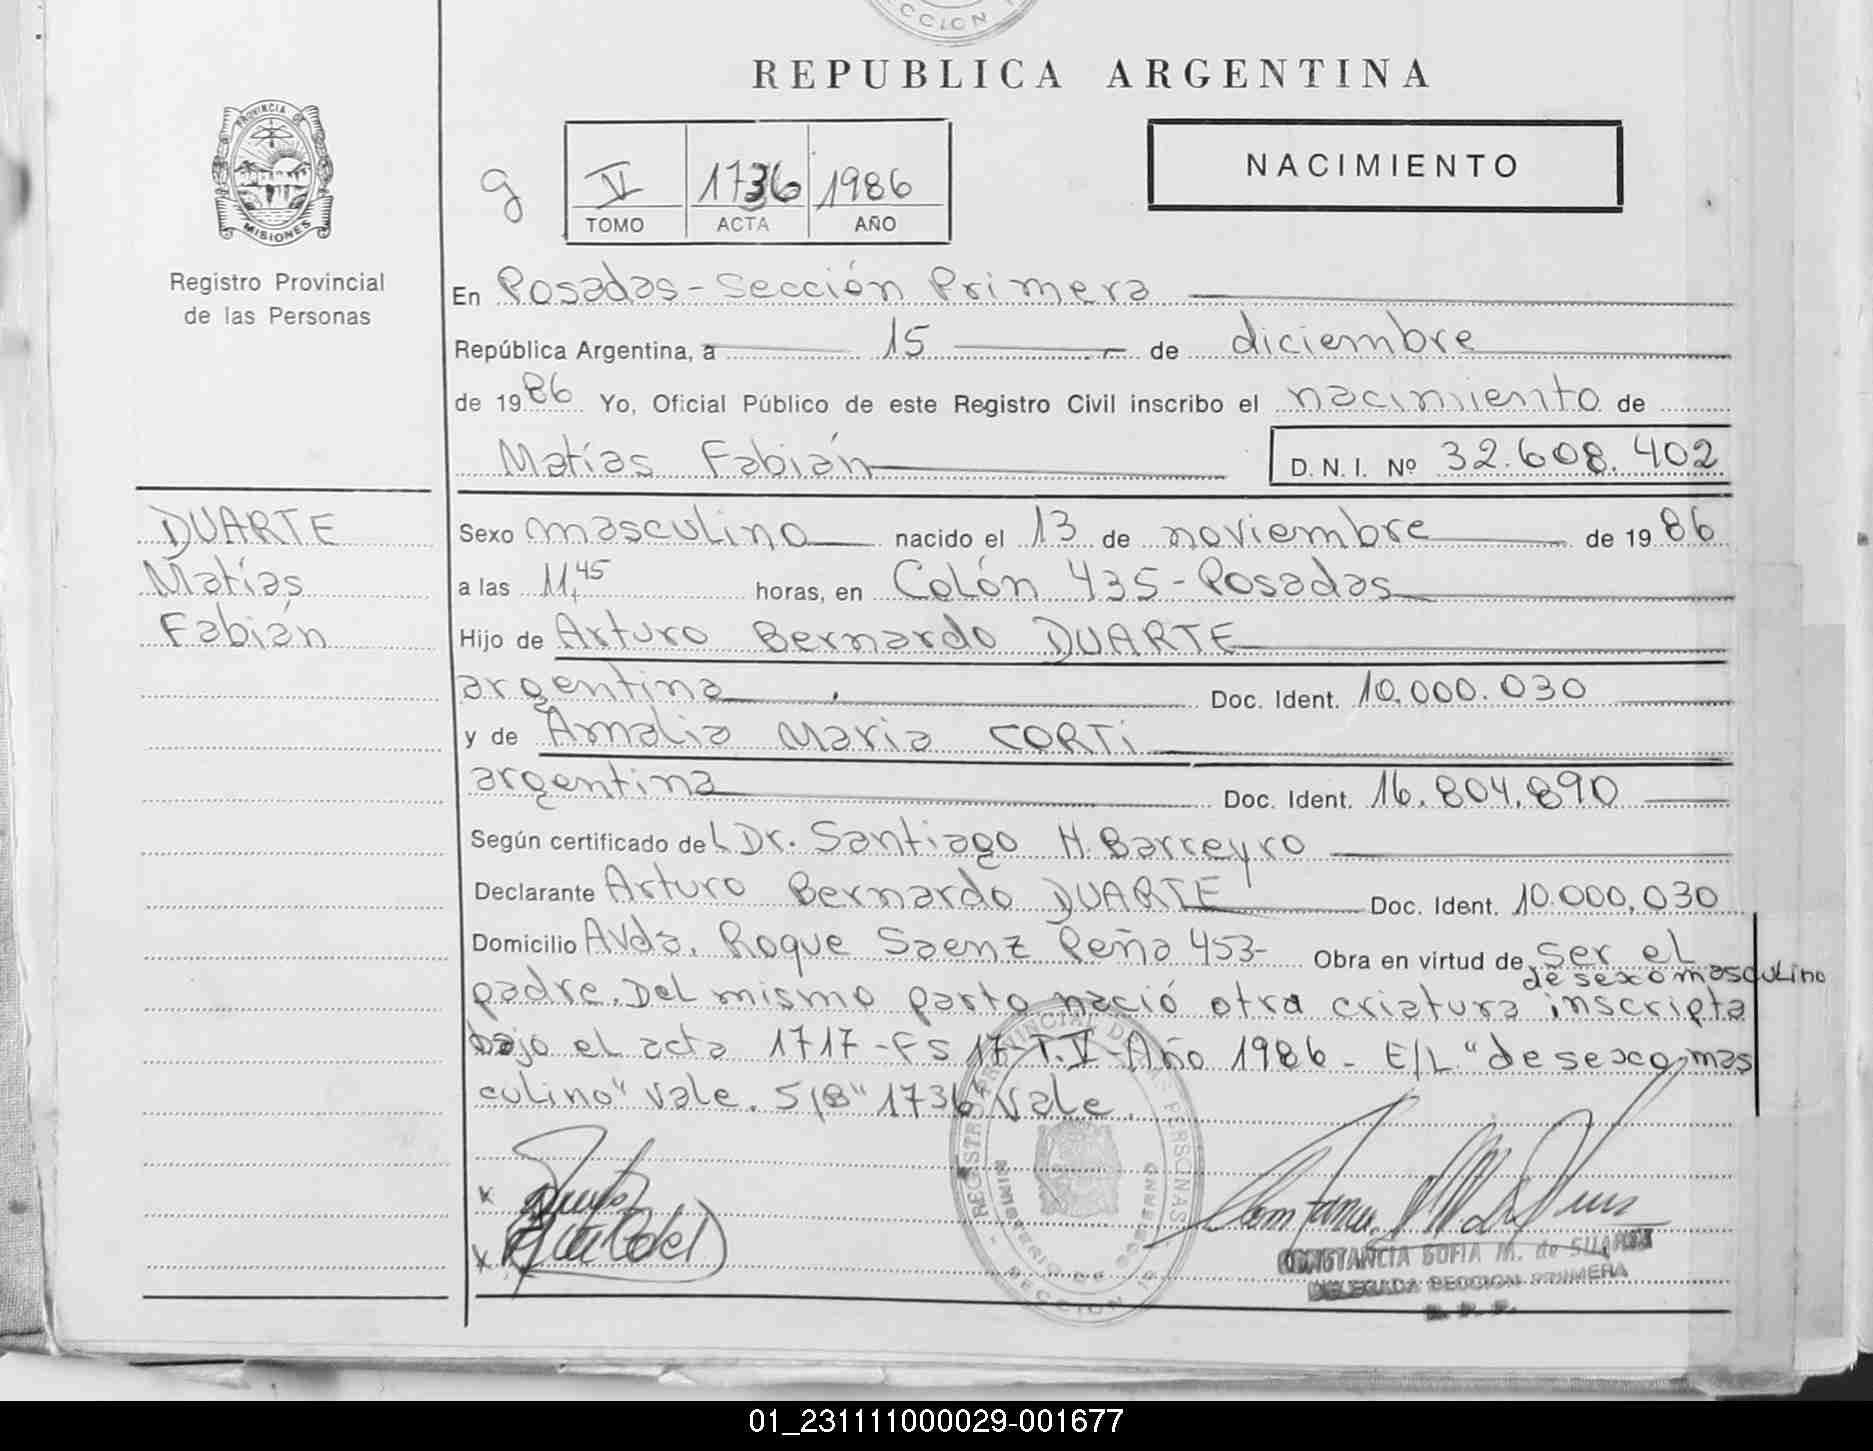 CCION
REPUBLICA ARGENTINA
PROVINCIA DE
MISIONES
Registro Provincial
de las Personas
g
V 1736 1986
TOMO ACTA AÑO
NACIMIENTO
En Posadas - Sección Primera
República Argentina, a 15 de diciembre
de 1986 Yo, Oficial Público de este Registro Civil inscribo el nacimiento de
Matías Fabián D.N.I. Nº 32.608.402
DUARTE
Matías
Fabián
Sexo masculino nacido el 13 de noviembre de 1986
a las 11,45 horas, en Colón 435 - Posadas
Hijo de Arturo Bernardo DUARTE
argentina Doc. Ident. 10.000.030
y de Amalia Maria CORTi
argentina Doc. Ident. 16.804.890
Según certificado del Dr. Santiago H. Barreyro
Declarante Arturo Bernardo DUARTE Doc. Ident. 10.000.030
Domicilio Avda. Roque Saenz Peña 453- Obra en virtud de ser el
de sexo masculino
padre. Del mismo parto nació otra criatura inscripta
bajo el acta 1717 - Fs 17 - T. V - Año 1986 - E/L "de sexo mas
culino" vale. S/B "1736" vale.
REGISTRO PROVINCIAL DE LAS PERSONAS
MINISTERIO DE GOBIERNO
SECCION 1ª
CONSTANCIA SOFIA M. de SUAREZ
DELEGADA SECCION PRIMERA
R. P. P.
01_231111000029-001677